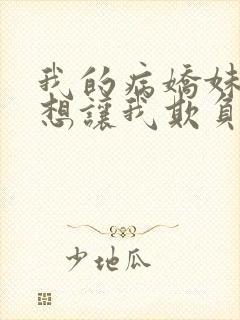 我的病嬌妹
想讓我欺負
少地瓜